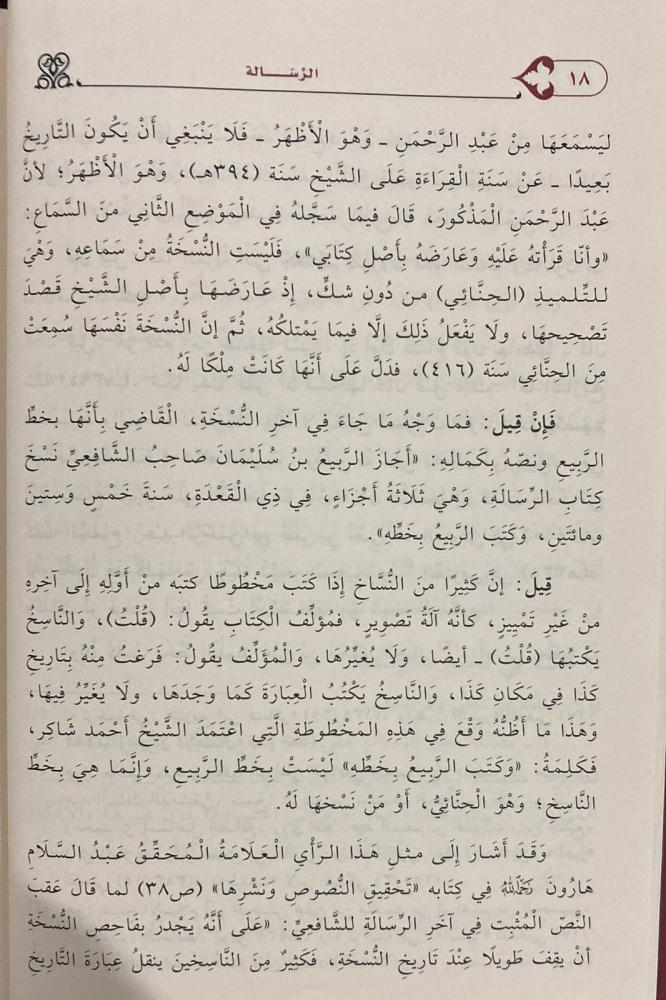 ١٨
الرسالة
ليَسْمَعَهَا مِنْ عَبْدِ الرَّحْمَنِ ـ وَهْوَ الْأَظْهَرُ ـ فَلَا يَنْبَغِي أَنْ يَكُونَ التَّارِيخُ
بَعِيدًا ـ عَنْ سَنَةِ القِرَاءَةِ عَلَى الشَّيْخِ سَنَة (٣٩٤هـ)، وَهْوَ الْأَظْهَرُ؛ لأنَّ
عَبْدَ الرَّحْمَنِ المَذْكُورَ، قَالَ فيمَا سَجَّلهُ فِي الْمَوْضِعِ الثَّانِي منَ السَّمَاعِ:
«وأنّا قَرَأْتهُ عَلَيْهِ وَعَارَضهُ بِأَصْلِ كِتَابِي»، فَلَيْسَتِ النُّسْخَةُ مِنْ سَمَاعِهِ، وَهْيَ
للتِّلميذِ (الحِنَّائِي) من دُونِ شكٍّ، إذْ عَارَضَهَا بِأَصْلِ الشَّيْخِ قَصْدَ
تَصْحِيحهَا، ولَا يَفْعَلُ ذَلِكَ إلَّا فيمَا يَمْتلكُهُ، ثُمَّ إنَّ النُّسْخَةَ نَفْسَهَا سُمِعَتْ
مِنَ الحِنَّائِي سَنَة (٤١٦)، فدَلَّ عَلَى أَنَّهَا كَانَتْ مِلْكًا لَهُ.
فَإِنْ قِيلَ: فمَا وَجْهُ مَا جَاءَ فِي آخرِ النُّسْخَةِ، القَاضِي بِأَنَّهَا بخطِّ
الرَّبِيعِ ونصّهُ بِكَمَالِهِ: «أَجَازَ الرَّبِيعُ بنُ سُلَيْمَانَ صَاحِبُ الشَّافِعِيِّ نَسْخَ
كِتَابِ الرِّسَالَةِ، وَهْيَ ثَلَاثَةُ أَجْزَاءٍ، فِي ذِي القَعْدَةِ، سَنةَ خَمْسٍ وَستينَ
ومائتَينِ، وَكَتَبَ الرَّبِيعُ بِخَطِّهِ».
قِيلَ: إنَّ كَثِيرًا منَ النُّسَّاخِ إِذَا كَتَبَ مَخْطُوطًا كتبَه منْ أَوَّلِهِ إِلَى آخرِهِ
منْ غَيْرِ تَمْيِيزٍ، كأنَّهُ آلَةُ تَصْوِيرٍ، فمُؤلِّفُ الْكِتَابِ يقُولُ: (قُلْتُ)، وَالنَّاسِخُ
يَكْتبُهَا (قُلْتُ) ـ أيضًا، وَلَا يُغيِّرُهَا، وَالْمُؤَلِّفُ يقُولُ: فَرَغتُ مِنْهُ بِتَارِيخِ
كَذَا فِي مَكَانِ كَذَا، وَالنَّاسِخُ يَكْتُبُ العِبَارَةَ كَمَا وَجَدَهَا، ولَا يُغَيِّرُ فِيهَا،
وَهَذَا مَا أَظُنُّهُ وَقْعَ فِي هَذِهِ المَخْطُوطَةِ الَّتِي اعْتَمَدَ الشَّيْخُ أَحْمَد شَاكِر،
فَكَلِمَةُ: «وَكَتَبَ الرَّبِيعُ بِخَطِّهِ» لَيْسَتْ بِخَطِّ الرَّبِيعِ، وَإِنَّمَا هِيَ بِخَطِّ
النَّاسِخِ؛ وَهْوَ الْحِنَّائِيُّ، أَوْ مَنْ نَسْخهَا لَهُ.
وَقَدَ أَشَارَ إِلَى مثلِ هَذَا الرَّأْي العَلَامَةُ الْمُحَقِّقُ عَبْدُ السَّلَامِ
هَارُونَ رَحِمَهُ اللهُ فِي كِتَابه «تَحْقِيقِ النُّصُوصِ وَنَشْرِهَا» (ص٣٨) لما قَالَ عَقبَ
النَّصّ الْمُثْبِت فِي آخَرِ الرِّسَالَةِ للشَّافعِيِّ: «عَلَى أَنَّهُ يَجْدرُ بفَاحِصِ النُّسْخَةِ
أنْ يقِفَ طَوِيلًا عِنْدَ تَارِيخِ النُّسْخَةِ، فَكَثِيرٌ مِنَ النَّاسِخَينَ ينقلُ عِبَارَةَ التَّارِيخِ